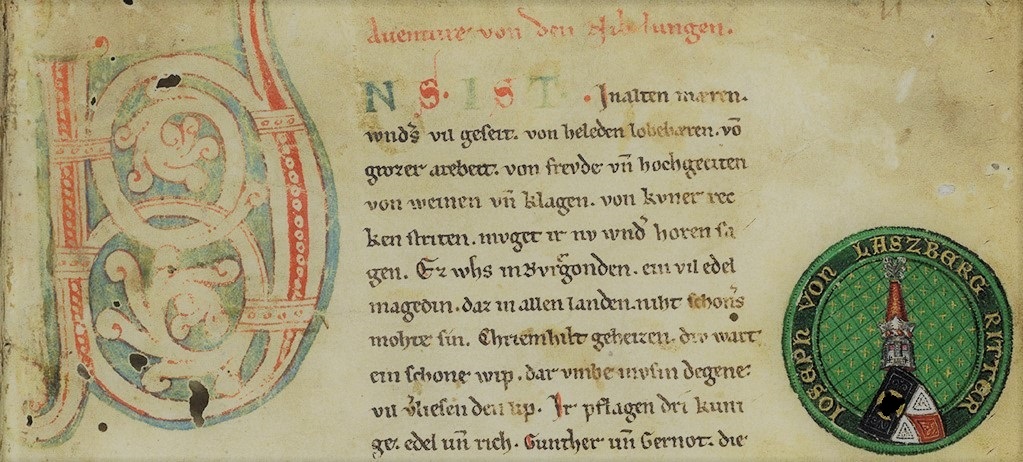 Auenture von den Nibelungen.
VNS. IST. Inalten mæren.
wnds vil geseit. von heleden lobebæren. võ
grozer arebeit. von frevde vñ hochgeciten
von weinen vñ klagen. von kvner rec
ken striten. mvget ir nv wnd horen sa
gen. Ez whs in Bvrgonden. ein vil edel
magedin. daz in allen landen. niht schoners
mohte sin. Chriemhilt geheizen. div wart
ein schone wip. dar vmbe mvsin degene
vil vliesen den lip. Ir pflagen dri kuni
ge. edel vñ rich. Gunther vñ Gernot. die
IOSEPH VON LASZBERG RITTER